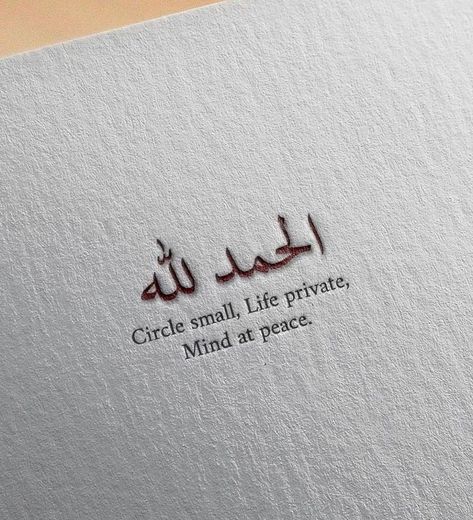 الحمد لله
Circle small, Life private,
Mind at peace.